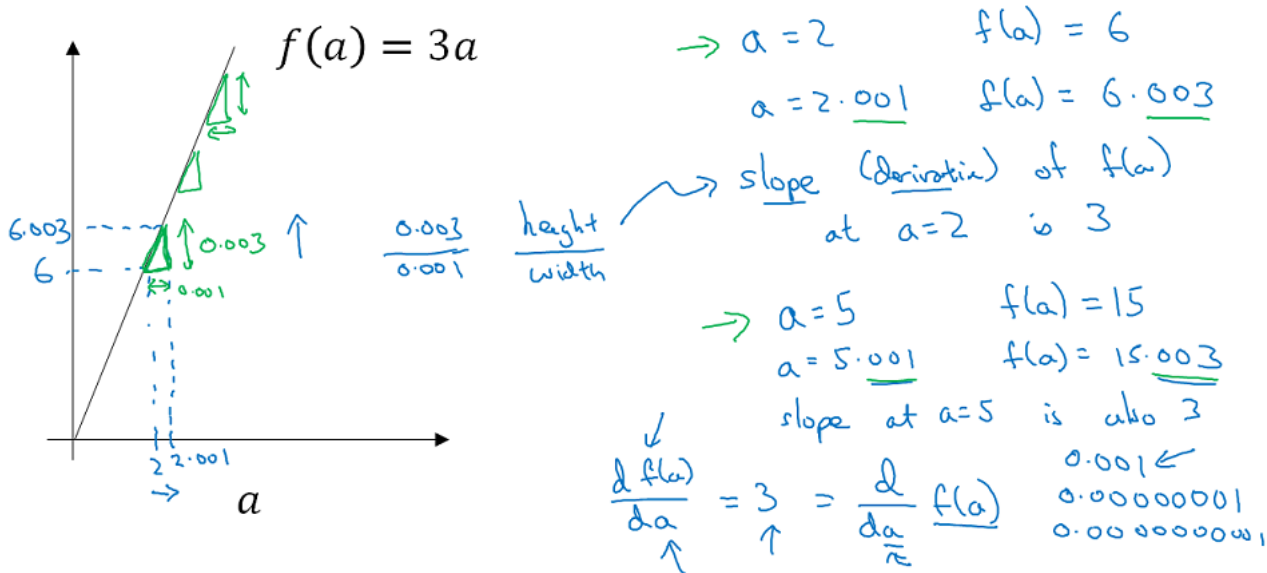 f(a) = 3a
6.003
6
0.003
0.001
2
2.001
a
0.003
0.001
height
width
a = 2    f(a) = 6
a = 2.001    f(a) = 6.003
slope (derivative) of f(a)
at a=2 is 3
a = 5    f(a) = 15
a = 5.001    f(a) = 15.003
slope at a=5 is also 3
d f(a)
da
= 3 =
d
da
f(a)
0.001
0.00000001
0.0000000001